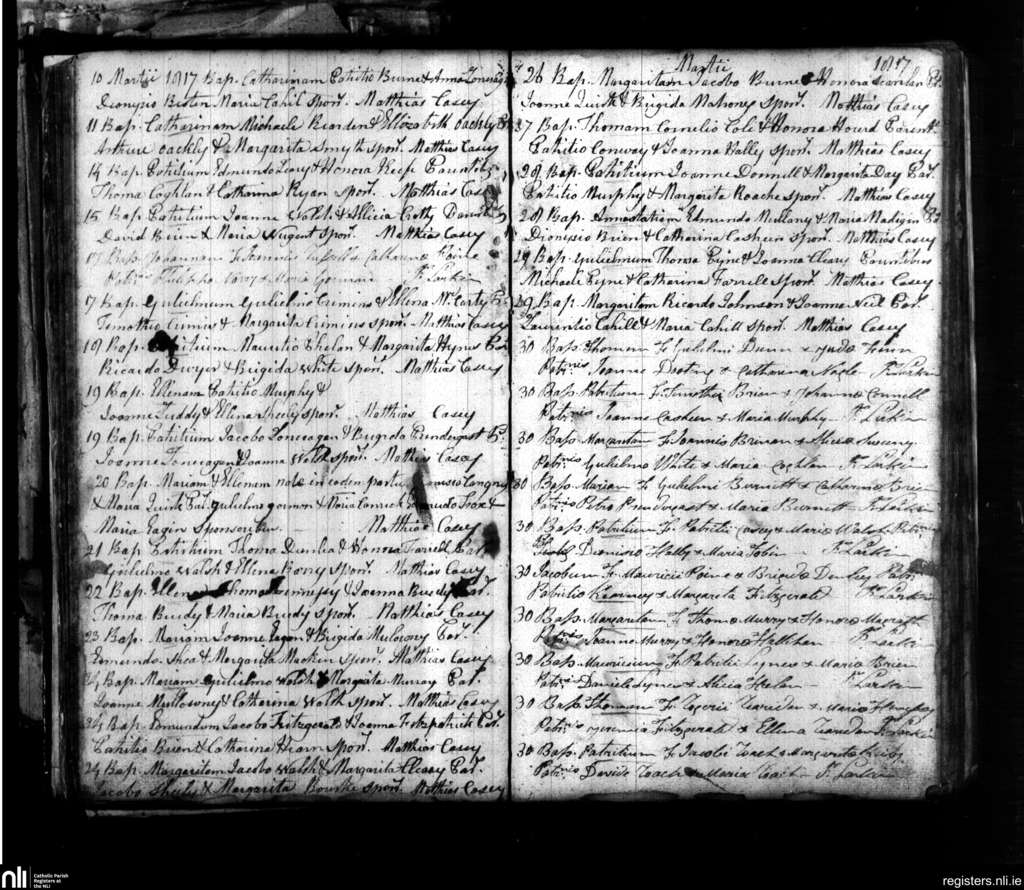 10 Martii 1817 Bap. Catharinam Patritio Burne & Anna
Dionysio Maria Cahil Spon. Matthias Casey
11 Bap. Catharinam Michaele Rearden & Elizabith Oackly
Arthure Oackly & Margarita Smyth Spon. Matthias Casey
14 Bap. Patritium Edmundo Leary & Honora Keefe Parentib.
Thoma Coghlan & Catharina Ryan Spon. Matthias Casey
15 Bap. Patritium Joanne Walsh & Allicia Parentib.
David Brien & Maria Nugent Spon. Matthias Casey
17 Bap. Joannam
Patr. & Maria Fr. Larkin
17 Bap. Gulielmum Gulielmo Crimins & Ellena McCarty
Timothio Crimins & Margarita Crimins Spon. Matthias Casey
19 Bap. Mauritio Phelan & Margarita Hynes
Ricardo Dwyer & Brigida White Spon. Matthias Casey
19 Bap. Ellenam Patritio Murphy &
Joanne Fuddy & Ellena Sheehy Spon. Matthias Casey
19 Bap. Patritium Jacobo Lonergan & Brigida Prendergast
Joanne Lonergan & Joanna Walsh Spon. Matthias Casey
20 Bap. Mariam & Ellenam natae in eodem partu
& Maria Quirk Par. Gulielmo &
Maria Eagin Sponsoribus Matthias Casey
21 Bap. Patritium Thoma & Honora Farrell Par.
Gulielmo Walsh & Ellena Spon. Matthias Casey
22 Bap. Ellenam Thoma Hennessy & Joanna Brudy Par.
Thoma Brudy & Maria Brudy Spon. Matthias Casey
23 Bap. Mariam Joanne Eagan & Brigida Par.
Edmundo Shea & Margarita Spon. Matthias Casey
24 Bap. Mariam Gulielmo Walsh & Margarita Murray Par.
Joanne Mullowny & Catharina Walsh Spon. Matthias Casey
24 Bap. Edmundum Jacobo Fitzgerald & Joanna Fitzpatrick Par.
Patritio Brien & Catharina Spon. Matthias Casey
24 Bap. Margaritam Jacobo Walsh & Margarita Cleary Par.
Jacobo Sheehy & Margarita Bourke Spon. Matthias Casey
Martii 1817
26 Bap. Margaritam Jacobo Burne & Honora Scanlan
Joanne Quirk & Brigida Mahony Spon. Matthias Casey
27 Bap. Thomam Cornelio Cole & Honora Hourd Parent.
Patritio Conway & Joanna Hally Spon. Matthias Casey
28 Bap. Patritium Joanne Donnell & Margarita Day Par.
Patritio Murphy & Margarita Roache Spon. Matthias Casey
28 Bap. Anastatiam Edmundo Mullany & Maria Madigin
Dionysio Brien & Catharina Casheen Spon. Matthias Casey
29 Bap. Gulielmum Thoma Eyne & Joanna Cleary Parentibus
Michaele Eyne & Catharina Farrell Spon. Matthias Casey
29 Bap. Margaritam Ricardo Johnson & Joanna Neil Par.
Laurentio Cahill & Maria Cahill Spon. Matthias Casey
30 Bap. Thomam F. Gulielmi Dunn &
Patr. Joanne & Catharina Nagle Fr. Larkin
30 Bap. Patritium F. Timothei Brien & Johanna Connell
Patr. Joanne Cashen & Maria Murphy Fr. Larkin
30 Bap. Margaritam F. Joannis & Alicia Sweeny
Patr. Gulielmo White & Maria Coghlan Fr. Larkin
30 Bap. Mariam F. Gulielmi Burnett & Catharina Brien
Patr. Petro Prendergast & Maria Burnett Fr. Larkin
30 Bap. Patritium F. Patritii Casey & Maria Walsh Patr.
Dionisio Hally & Maria Tobin Fr. Larkin
30 Jacobum F. Mauricii & Brigida Patr.
Patritio Kearney & Margarita Fitzgerald Fr. Larkin
30 Bap. Margaritam F. Thoma Murry & Honora Magrath
Joanne Murry & Honora Fr. Larkin
30 Bap. Mauricium F. Patritii Lynes & Maria Brien
Patr. Daniele Lynes & Alicia Phelan Fr. Larkin
30 Bap. Thomam F. & Maria
Patr. Fitzgerald & Ellena Fr. Larkin
30 Bap. Patritium F. Jacobi & Margarita
Patr. Davide Roach & Maria Fr. Larkin
nli
Catholic Parish
Registers at
the NLI
registers.nli.ie